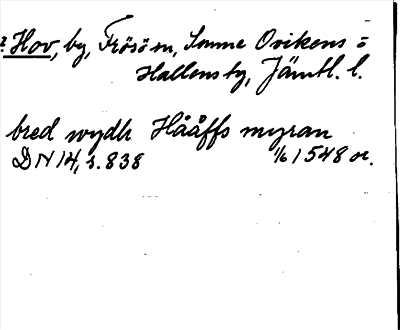 ? Hov, by, Frösö sn, Sunne Ovikens o
Hallens tg, Jämtl. l.
bred wydh Hååffs myran
DN 14, s. 838 1/6 1548 or.